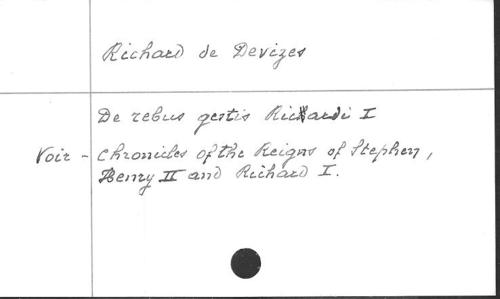 Richard de Devizes
De rebus gestis Richardi I
Voir - Chronicles of the Reigns of Stephen,
Henry II and Richard I.